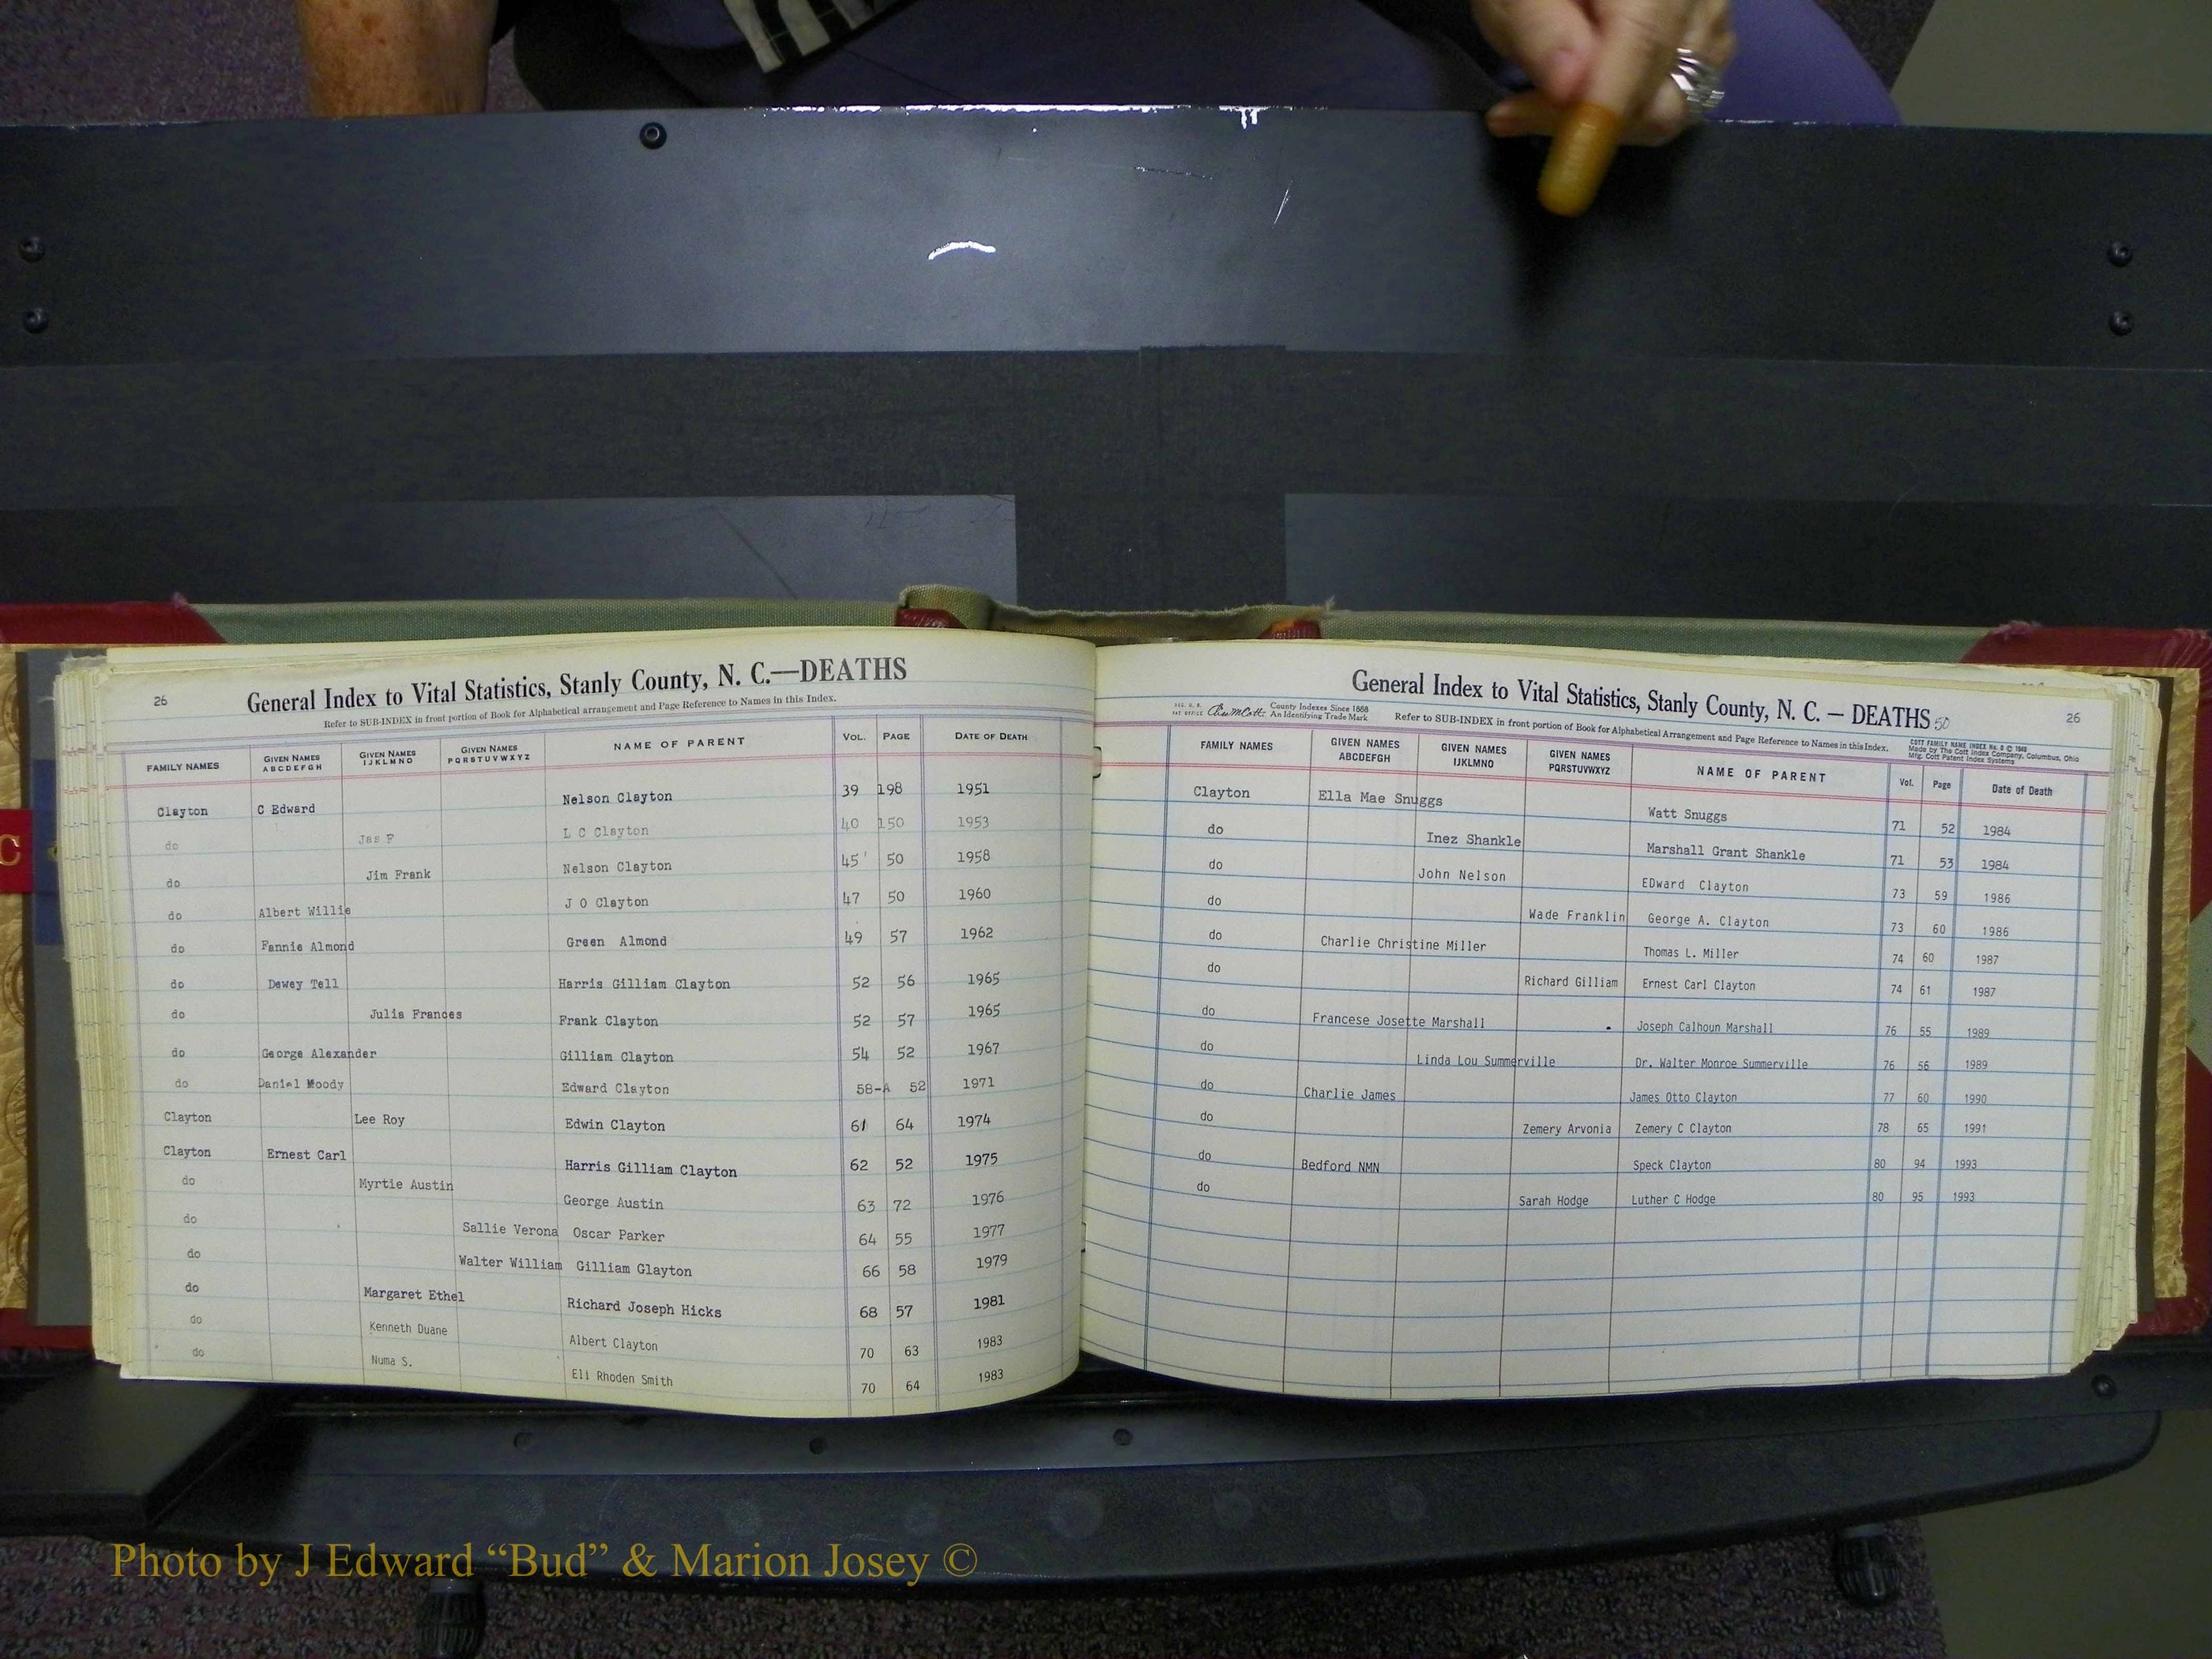 26
General Index to Vital Statistics, Stanly County, N. C.—DEATHS
Refer to SUB-INDEX in front portion of Book for Alphabetical arrangement and Page Reference to Names in this Index.
FAMILY NAMES GIVEN NAMES ABCDEFGH GIVEN NAMES IJKLMNO GIVEN NAMES PQRSTUVWXYZ NAME OF PARENT VOL. PAGE DATE OF DEATH
Clayton C Edward Nelson Clayton 39 198 1951
do Jas F L C Clayton 40 150 1953
do Jim Frank Nelson Clayton 45 50 1958
do Albert Willie J O Clayton 47 50 1960
do Fannie Almond Green Almond 49 57 1962
do Dewey Tell Harris Gilliam Clayton 52 56 1965
do Julia Frances Frank Clayton 52 57 1965
do George Alexander Gilliam Clayton 54 52 1967
do Daniel Moody Edward Clayton 58-A 52 1971
Clayton Lee Roy Edwin Clayton 61 64 1974
Clayton Ernest Carl Harris Gilliam Clayton 62 52 1975
do Myrtie Austin George Austin 63 72 1976
do Sallie Verona Oscar Parker 64 55 1977
do Walter William Gilliam Glayton 66 58 1979
do Margaret Ethel Richard Joseph Hicks 68 57 1981
do Kenneth Duane Albert Clayton 70 63 1983
do Numa S. Eli Rhoden Smith 70 64 1983
General Index to Vital Statistics, Stanly County, N. C. — DEATHS 50
26
County Indexes Since 1888
An Identifying Trade Mark
Refer to SUB-INDEX in front portion of Book for Alphabetical Arrangement and Page Reference to Names in this Index.
COTT FAMILY NAME INDEX
Made by The Cott Index Company, Columbus, Ohio
Mfg. Cott Patent Index Systems
FAMILY NAMES GIVEN NAMES ABCDEFGH GIVEN NAMES IJKLMNO GIVEN NAMES PQRSTUVWXYZ NAME OF PARENT Vol. Page Date of Death
Clayton Ella Mae Snuggs Watt Snuggs 71 52 1984
do Inez Shankle Marshall Grant Shankle 71 53 1984
do John Nelson EDward Clayton 73 59 1986
do Wade Franklin George A. Clayton 73 60 1986
do Charlie Christine Miller Thomas L. Miller 74 60 1987
do Richard Gilliam Ernest Carl Clayton 74 61 1987
do Francese Josette Marshall Joseph Calhoun Marshall 76 55 1989
do Linda Lou Summerville Dr. Walter Monroe Summerville 76 56 1989
do Charlie James James Otto Clayton 77 60 1990
do Zemery Arvonia Zemery C Clayton 78 65 1991
do Bedford NMN Speck Clayton 80 94 1993
do Sarah Hodge Luther C Hodge 80 95 1993
C
Photo by J Edward “Bud” & Marion Josey ©